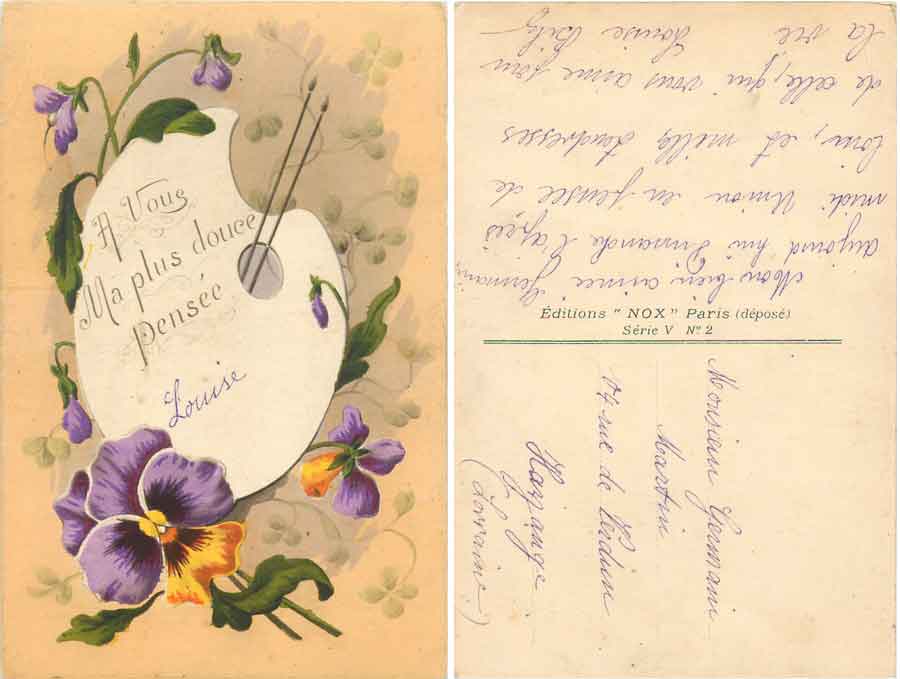 A Vous
Ma plus douce
Pensée
Louise
Mon bien aimée Germain,
aujourd hui Dimanche l'après
midi Union en pensée de
loin, et mille tendresses
de celle, qui vous aime pour
la vie Louise
Éditions " NOX " Paris (déposé)
Série V Nº 2
Monsieur Germain
Martin
rue de Verdun
Hayange
(Lorraine)